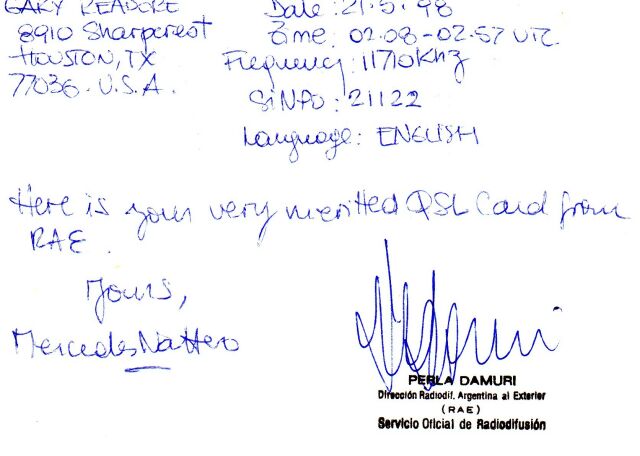 GARY READORE
8910 Sharpcrest
HOUSTON, TX
77036. U.S.A.
Date: 21.5.98
Time: 02.08-02.57 UTC
Frequency: 11710 Khz
SiNPO: 21122
Language: ENGLISH
Here is your very meritted QSL Card from
RAE.
Yours,
Mercedes Nattero
PERLA DAMURI
Dirección Radiodif. Argentina al Exterior
(RAE)
Servicio Oficial de Radiodifusión